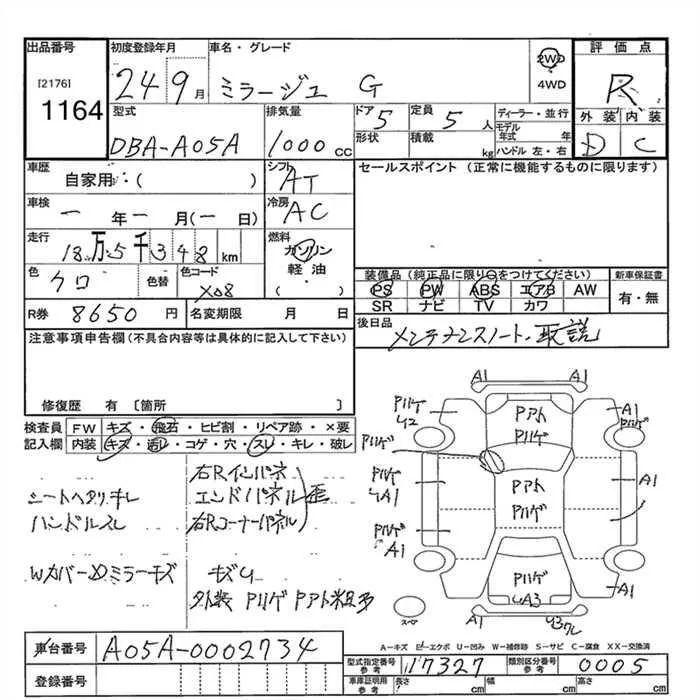 出品番号
[2176]
1164
初度登録年月
24 9月
車名・グレード
ミラージュ G
2WD
4WD
評価点
R
外装 内装
D C
型式
DBA-A05A
排気量
1000cc
ドア 5
形状
定員 5人
積載 kg
ディーラー・並行
モデル年式 年
ハンドル 左・右
車歴
自家用・( )
シフト AT
セールスポイント (正常に機能するものに限ります)
車検
一年一月(一日)
冷房 AC
走行
18万5千348km
燃料
ガソリン
軽油・
( )
色 クロ
色替
色コード X08
装備品(純正品に限り○をつけてください)
PS PW ABS エアB AW
SR ナビ TV カワ
新車保証書
有・無
R券 8650円
名変期限 月 日
後日品
メンテナンスノート・取説
注意事項申告欄(不具合内容等は具体的に記入して下さい)
修復歴 有 〔箇所 〕
検査員記入欄
FW キズ・飛石・ヒビ割・リペア跡・×要
内装 キズ・汚レ・コゲ・穴・スレ・キレ・破レ
シートヘタリ・キレ
ハンドルスレ
Wカバー・Dミラーキズ
右Rインパネ
エンドパネル 歪
右Rコーナーパネル
キズU
外装 Pハゲ Pアト 粗多
A1 A1
Pハゲ
U2
Pアト
Pハゲ
A1
Pハゲ
Pハゲ
Pハゲ
UA1
Pアト
Pハゲ
A1
Pハゲ
A1
Pハゲ
UA3
A1
スペア
A1
A-キズ E-エクボ U-凹み W-補修跡 S-サビ C-腐食 XX-交換済
車台番号 A05A-0002734
登録番号
型式指定番号 参考 17327
類別区分番号 参考 0005
車庫証明用 参考 長さ cm 幅 cm 高さ cm